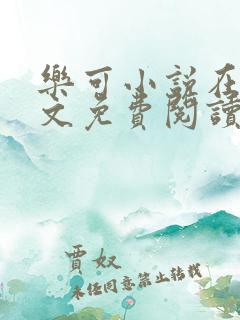 樂可小説在
文免費閱讀
賈奴
未經同意禁止轉載